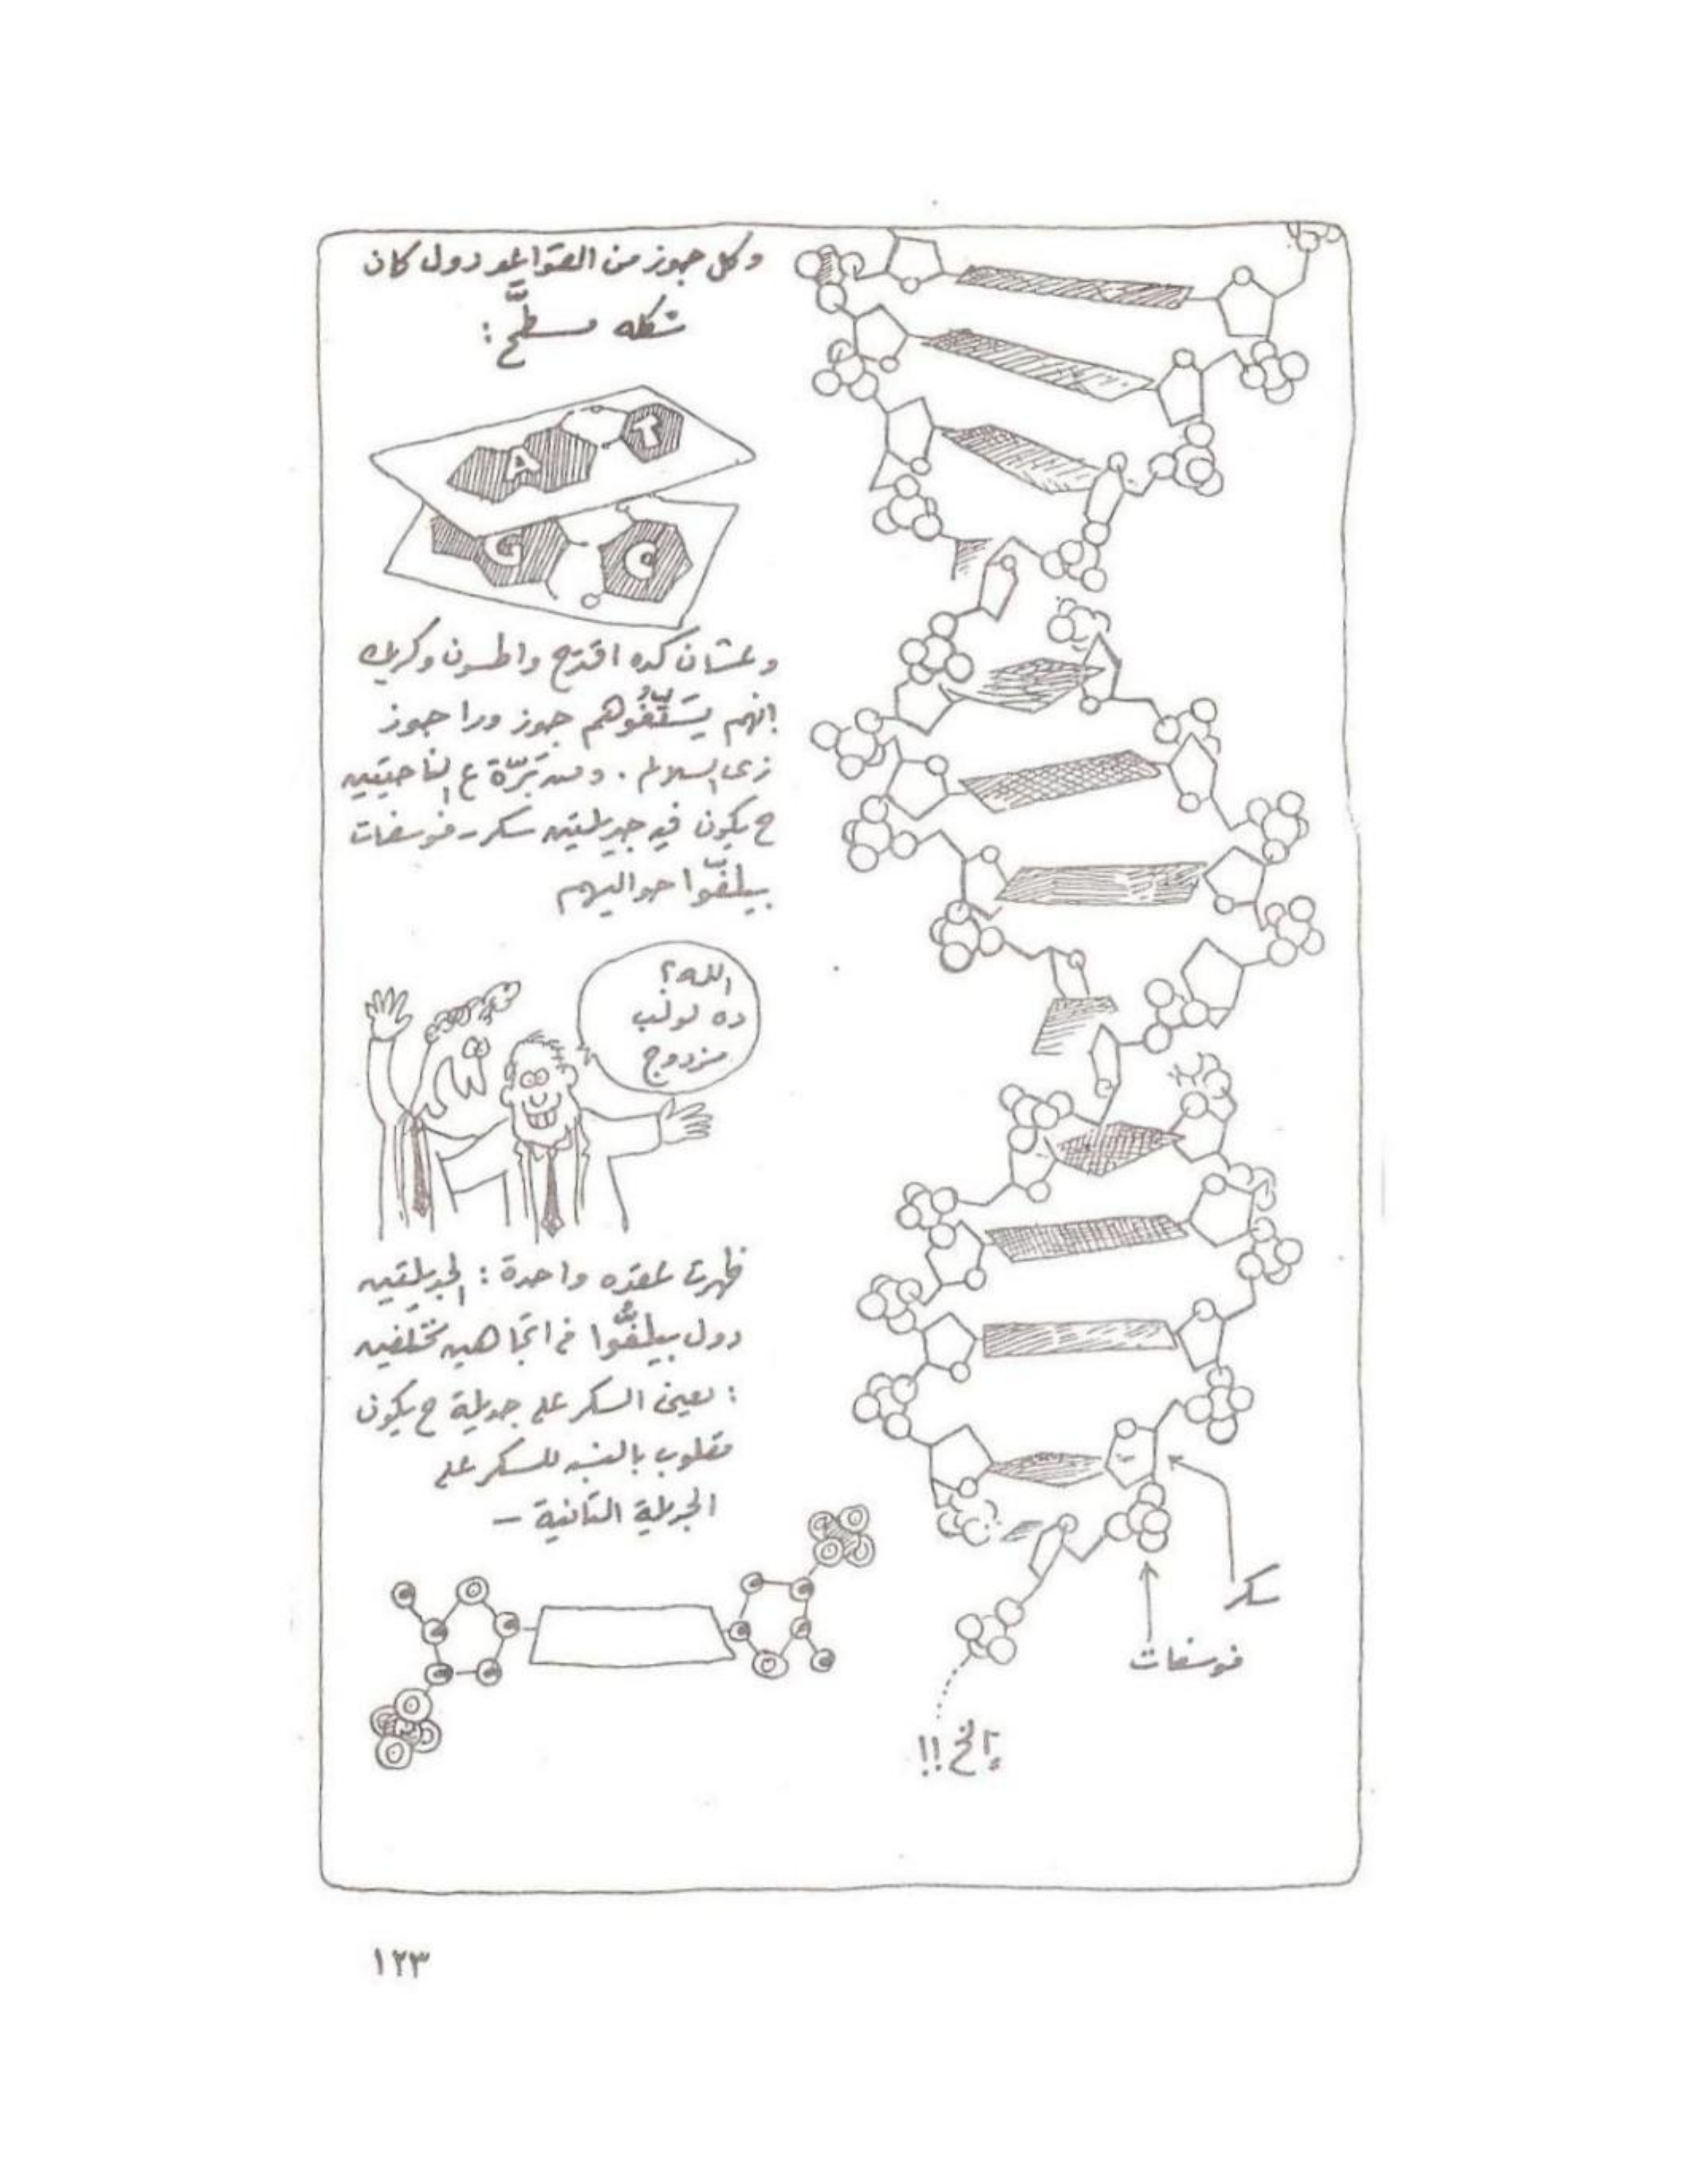 وكل جوز من القواعد دول كان
شكله مسطَّح :
A T
G C
وعشان كده اقترح واطسون وكريك
إنهم يستَّفُوهم جوز ورا جوز
زى السلالم . ومن بَرّة ع الناحيتين
ح يكون فيه جديلتين سكر - فوسفات
بيلفّوا حواليهم
الله؟
ده لولب
مزدوج
ظهرت عقده واحدة : الجديلتين
دول بيلفُّوا فى اتجاهين مختلفين
: يعنى السكر على جديلة ح يكون
مقلوب بالنسبه للسكر على
الجديلة التانية –
سكر
فوسفات
إلخ !!
١٢٣